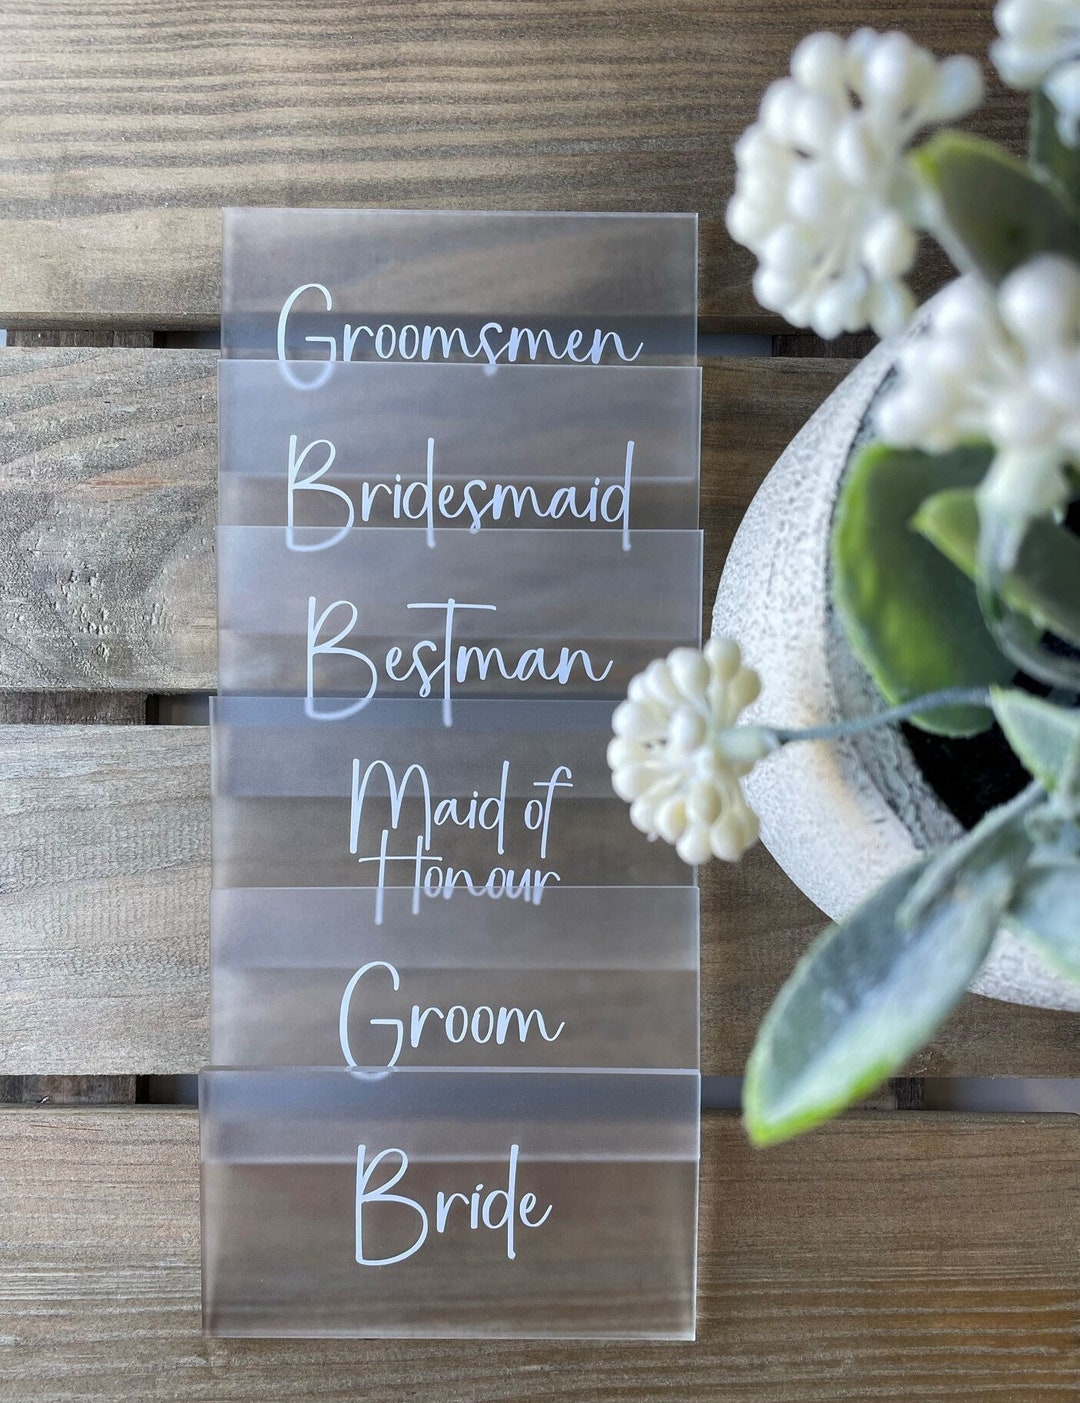 Groomsmen
Bridesmaid
Bestman
Maid of
Honour
Groom
Bride